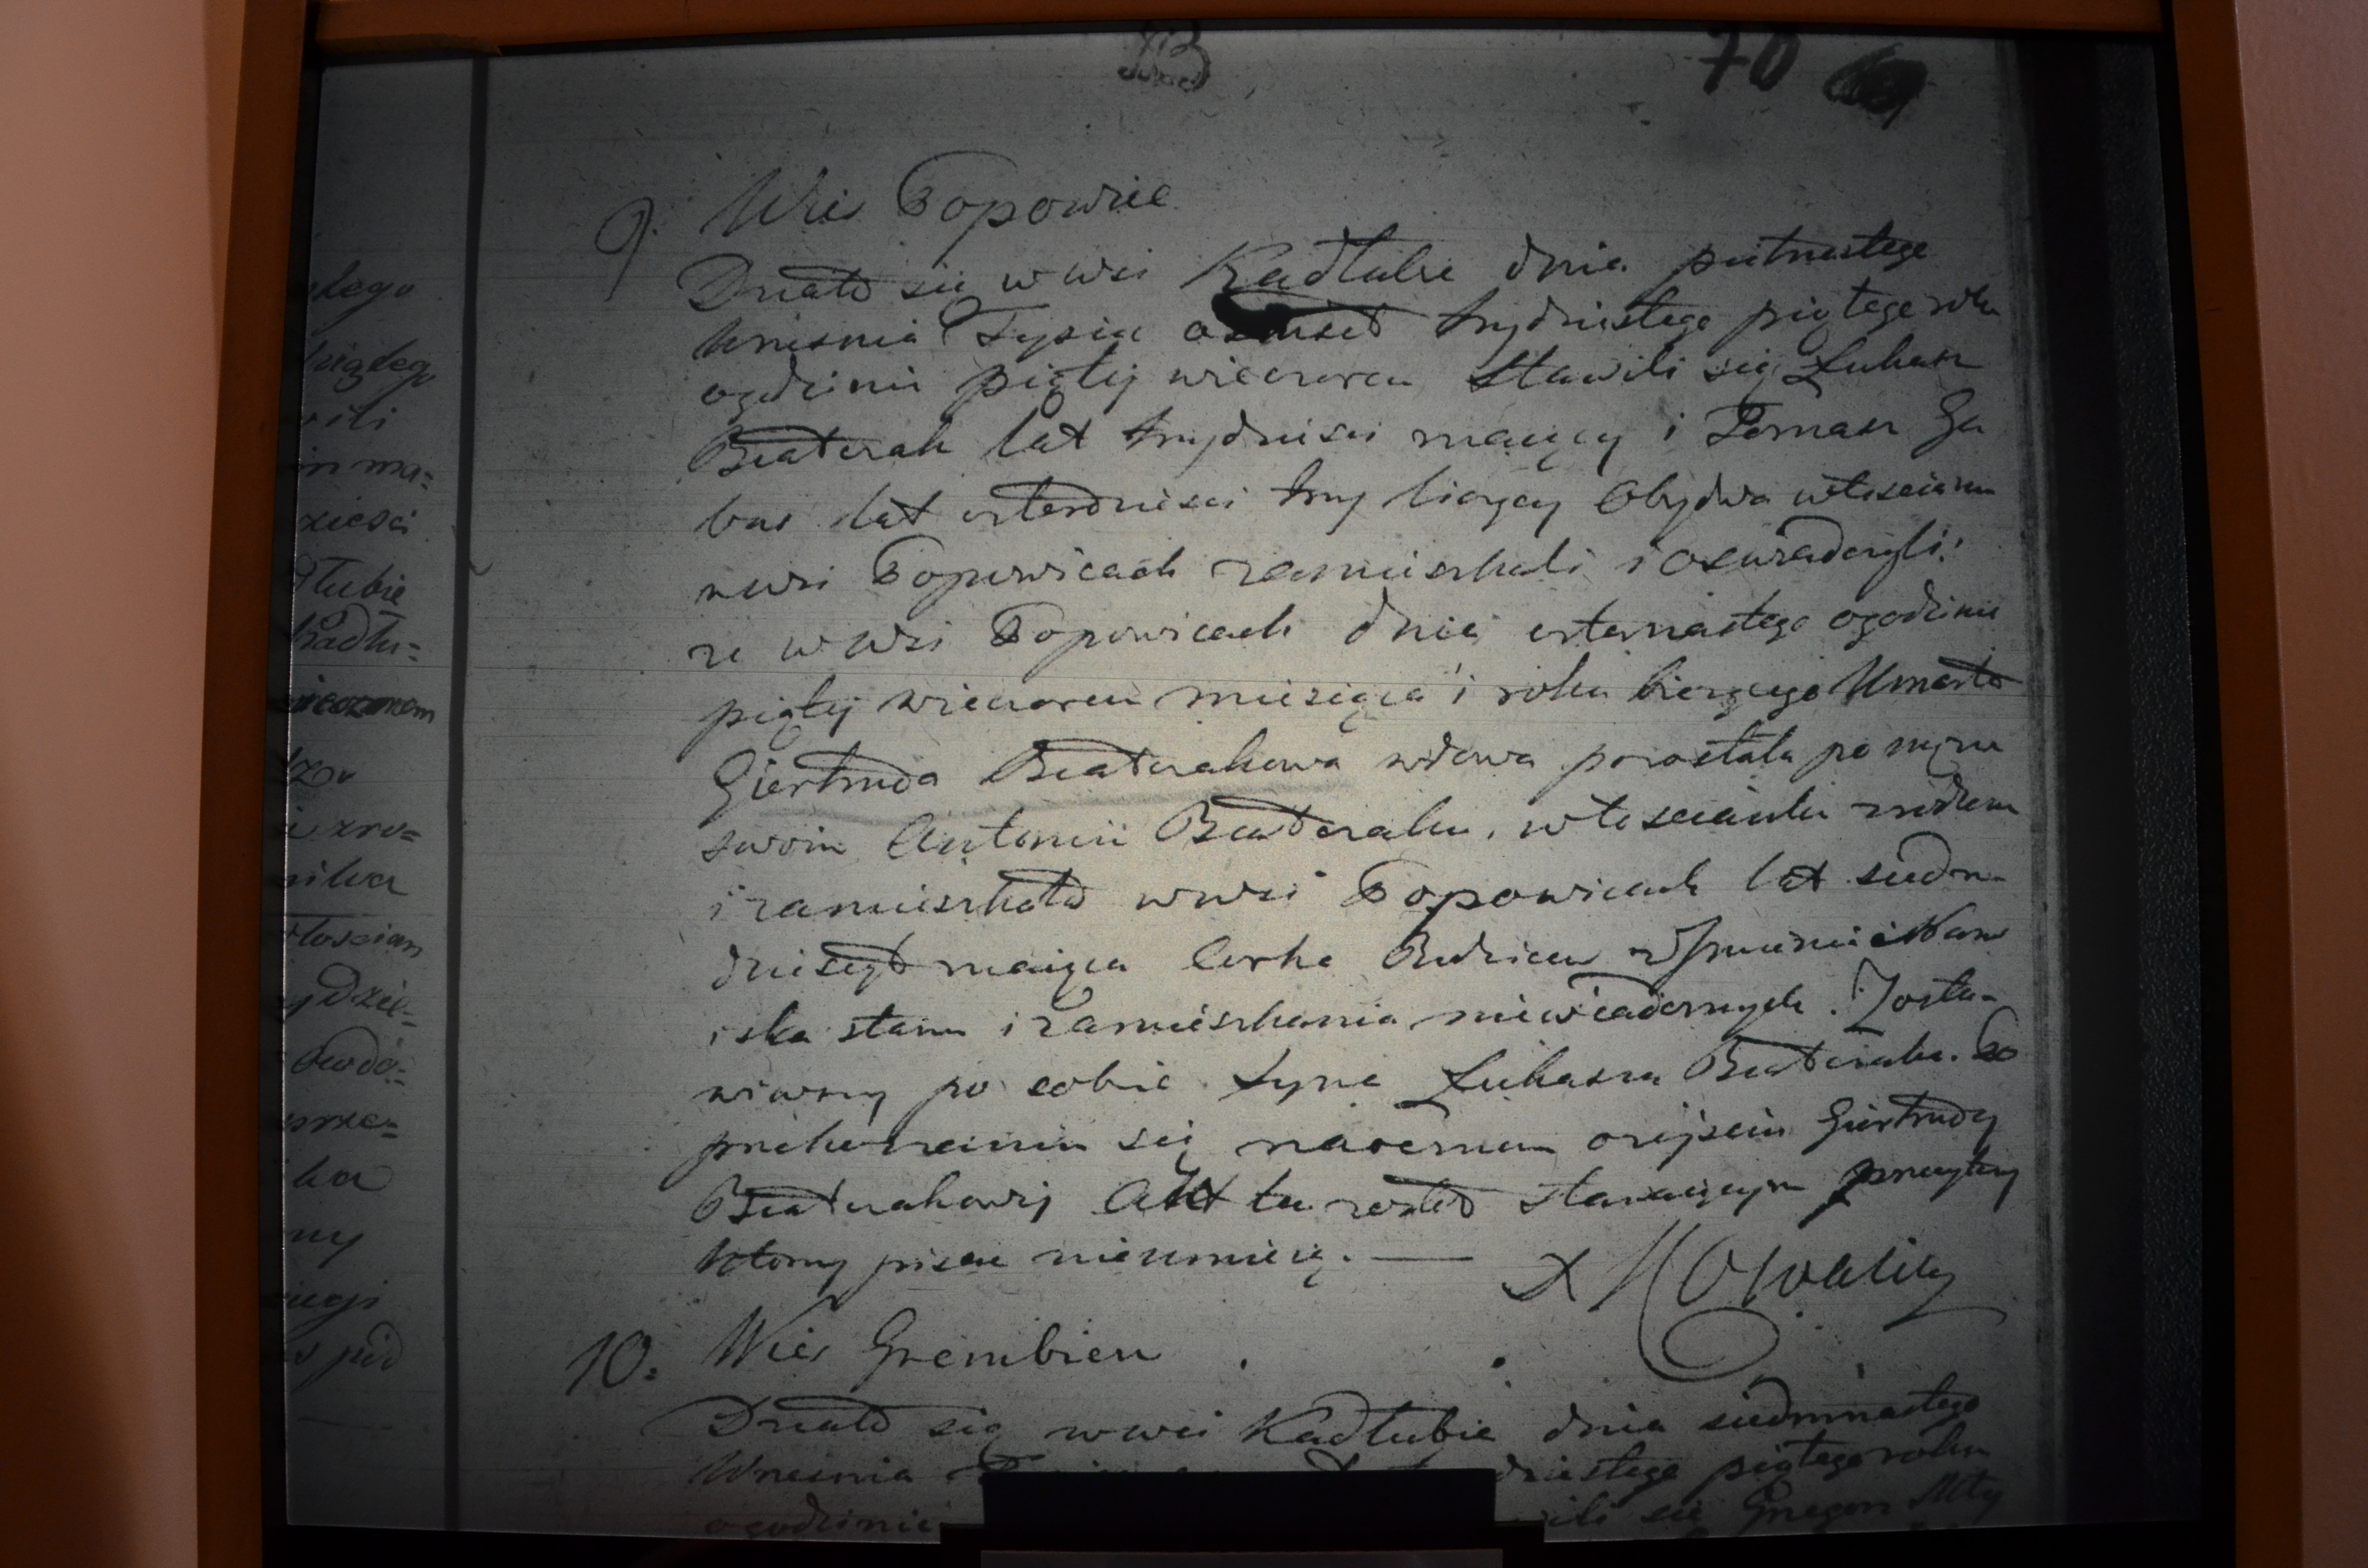 70
9. Wieś Popowice
Działo się w wsi Kadłubie dnia piętnastego
Wrzesnia Tysiąc osmset trzydziestego piątego roku
ogodzinie piątej wieczorem Stawili się Łukasz
Biaterak lat trzydziesci maiący i Tomasz Ga
bus lat czterdziesci trzy liczący Obydwa włoscianie
wwsi Popowicach zamieszkali i oswiadczyli:
że w Wsi Popowicach dnia czternastego ogodzinie
piątej wieczorem miesiąca i roku bieżącego Umarła
Giertruda Biaterakowa wdowa pozostała po mężu
swoim Antonim Biateraku, włoscianka rodem
i zamieszkała wwsi Popowicach lat siedm-
dziesiąt maiąca Corka Rodzicow z Imienia i Nazw
iska stanu i zamieszkania niewiadomych. Zosta-
wiwszy po sobie Syna Łukasza Biateraka. Po
przekonaniu się naocznem o zejsciu Giertrudy
Biaterakowej Akt ten został Stawaiącym przeczytany
ktorzy pisać nieumieią. —
X Kowalsky
10. Wieś Grembien
Działo się wwsi Kadłubie dnia siedmnastego
Wrzesnia dziestego piątego roku
ogodzinie wili się Grzegorz
stego
wili
ma=
ziesci
dłubie
Kadłu=
wieczorem
ilka
włoscian
ydzie=
Owdo=
ka
ny
pod